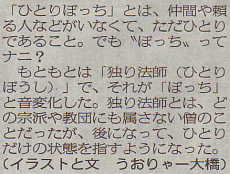 「ひとりぼっち」とは、仲間や頼
る人などがいなくて、ただひとり
であること。でも〝ぼっち〟って
ナニ？
　もともとは「独り法師（ひとり
ぼうし）」で、それが「ぼっち」
と音変化した。独り法師とは、ど
の宗派や教団にも属さない僧のこ
とだったが、後になって、ひとり
だけの状態を指すようになった。
（イラストと文　うおりゃー大橋）